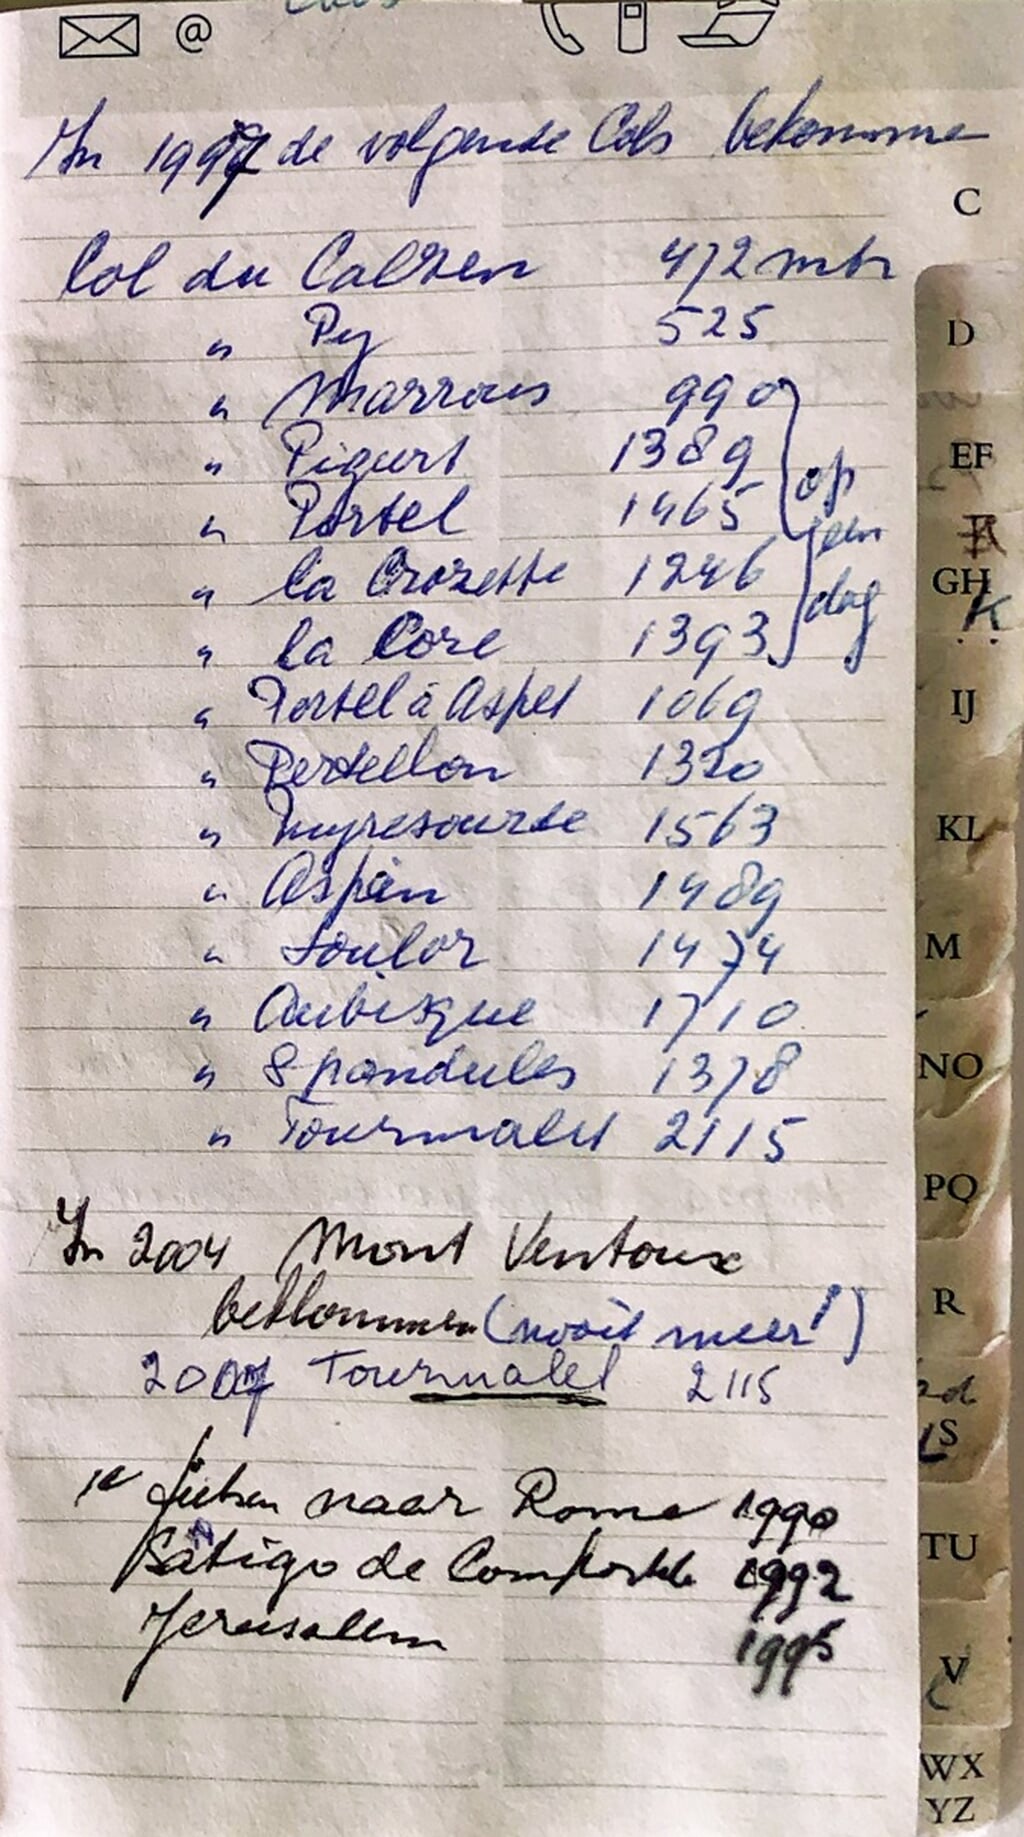 @
In 1997 de volgende Cols bekomme
Col du Calzen 472 mtr
" Py 525
" Marrous 990
" Pigurt 1389 op
" Portel 1465 een
" la Crozette 1246 dag
" la Core 1393
" Portel à Aspet 1069
" Portellon 1320
" Peyresourde 1563
" Aspin 1489
" Soulor 1474
" Aubisque 1710
" Spandules 1378
" Tourmalet 2115
In 2004 Mont Ventoux
beklommen (nooit meer!)
2007 Tourmalet 2115
fietsen naar Rome 1990
Satigo de Compostela 1992
Jerusalem 1995
C
D
EF
GH
K
IJ
KL
M
NO
PQ
R
S
TU
V
WX
YZ